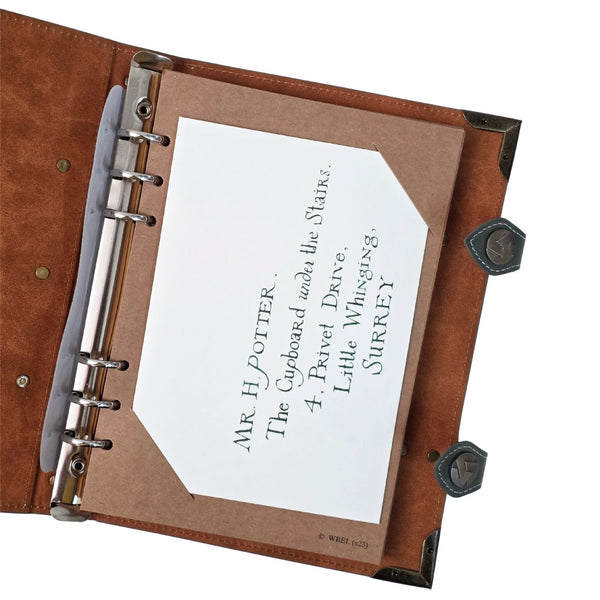 MR. H. POTTER.
The Cupboard under the Stairs.
4, Privet Drive,
Little Whinging,
SURREY
© WBEI. (s23)